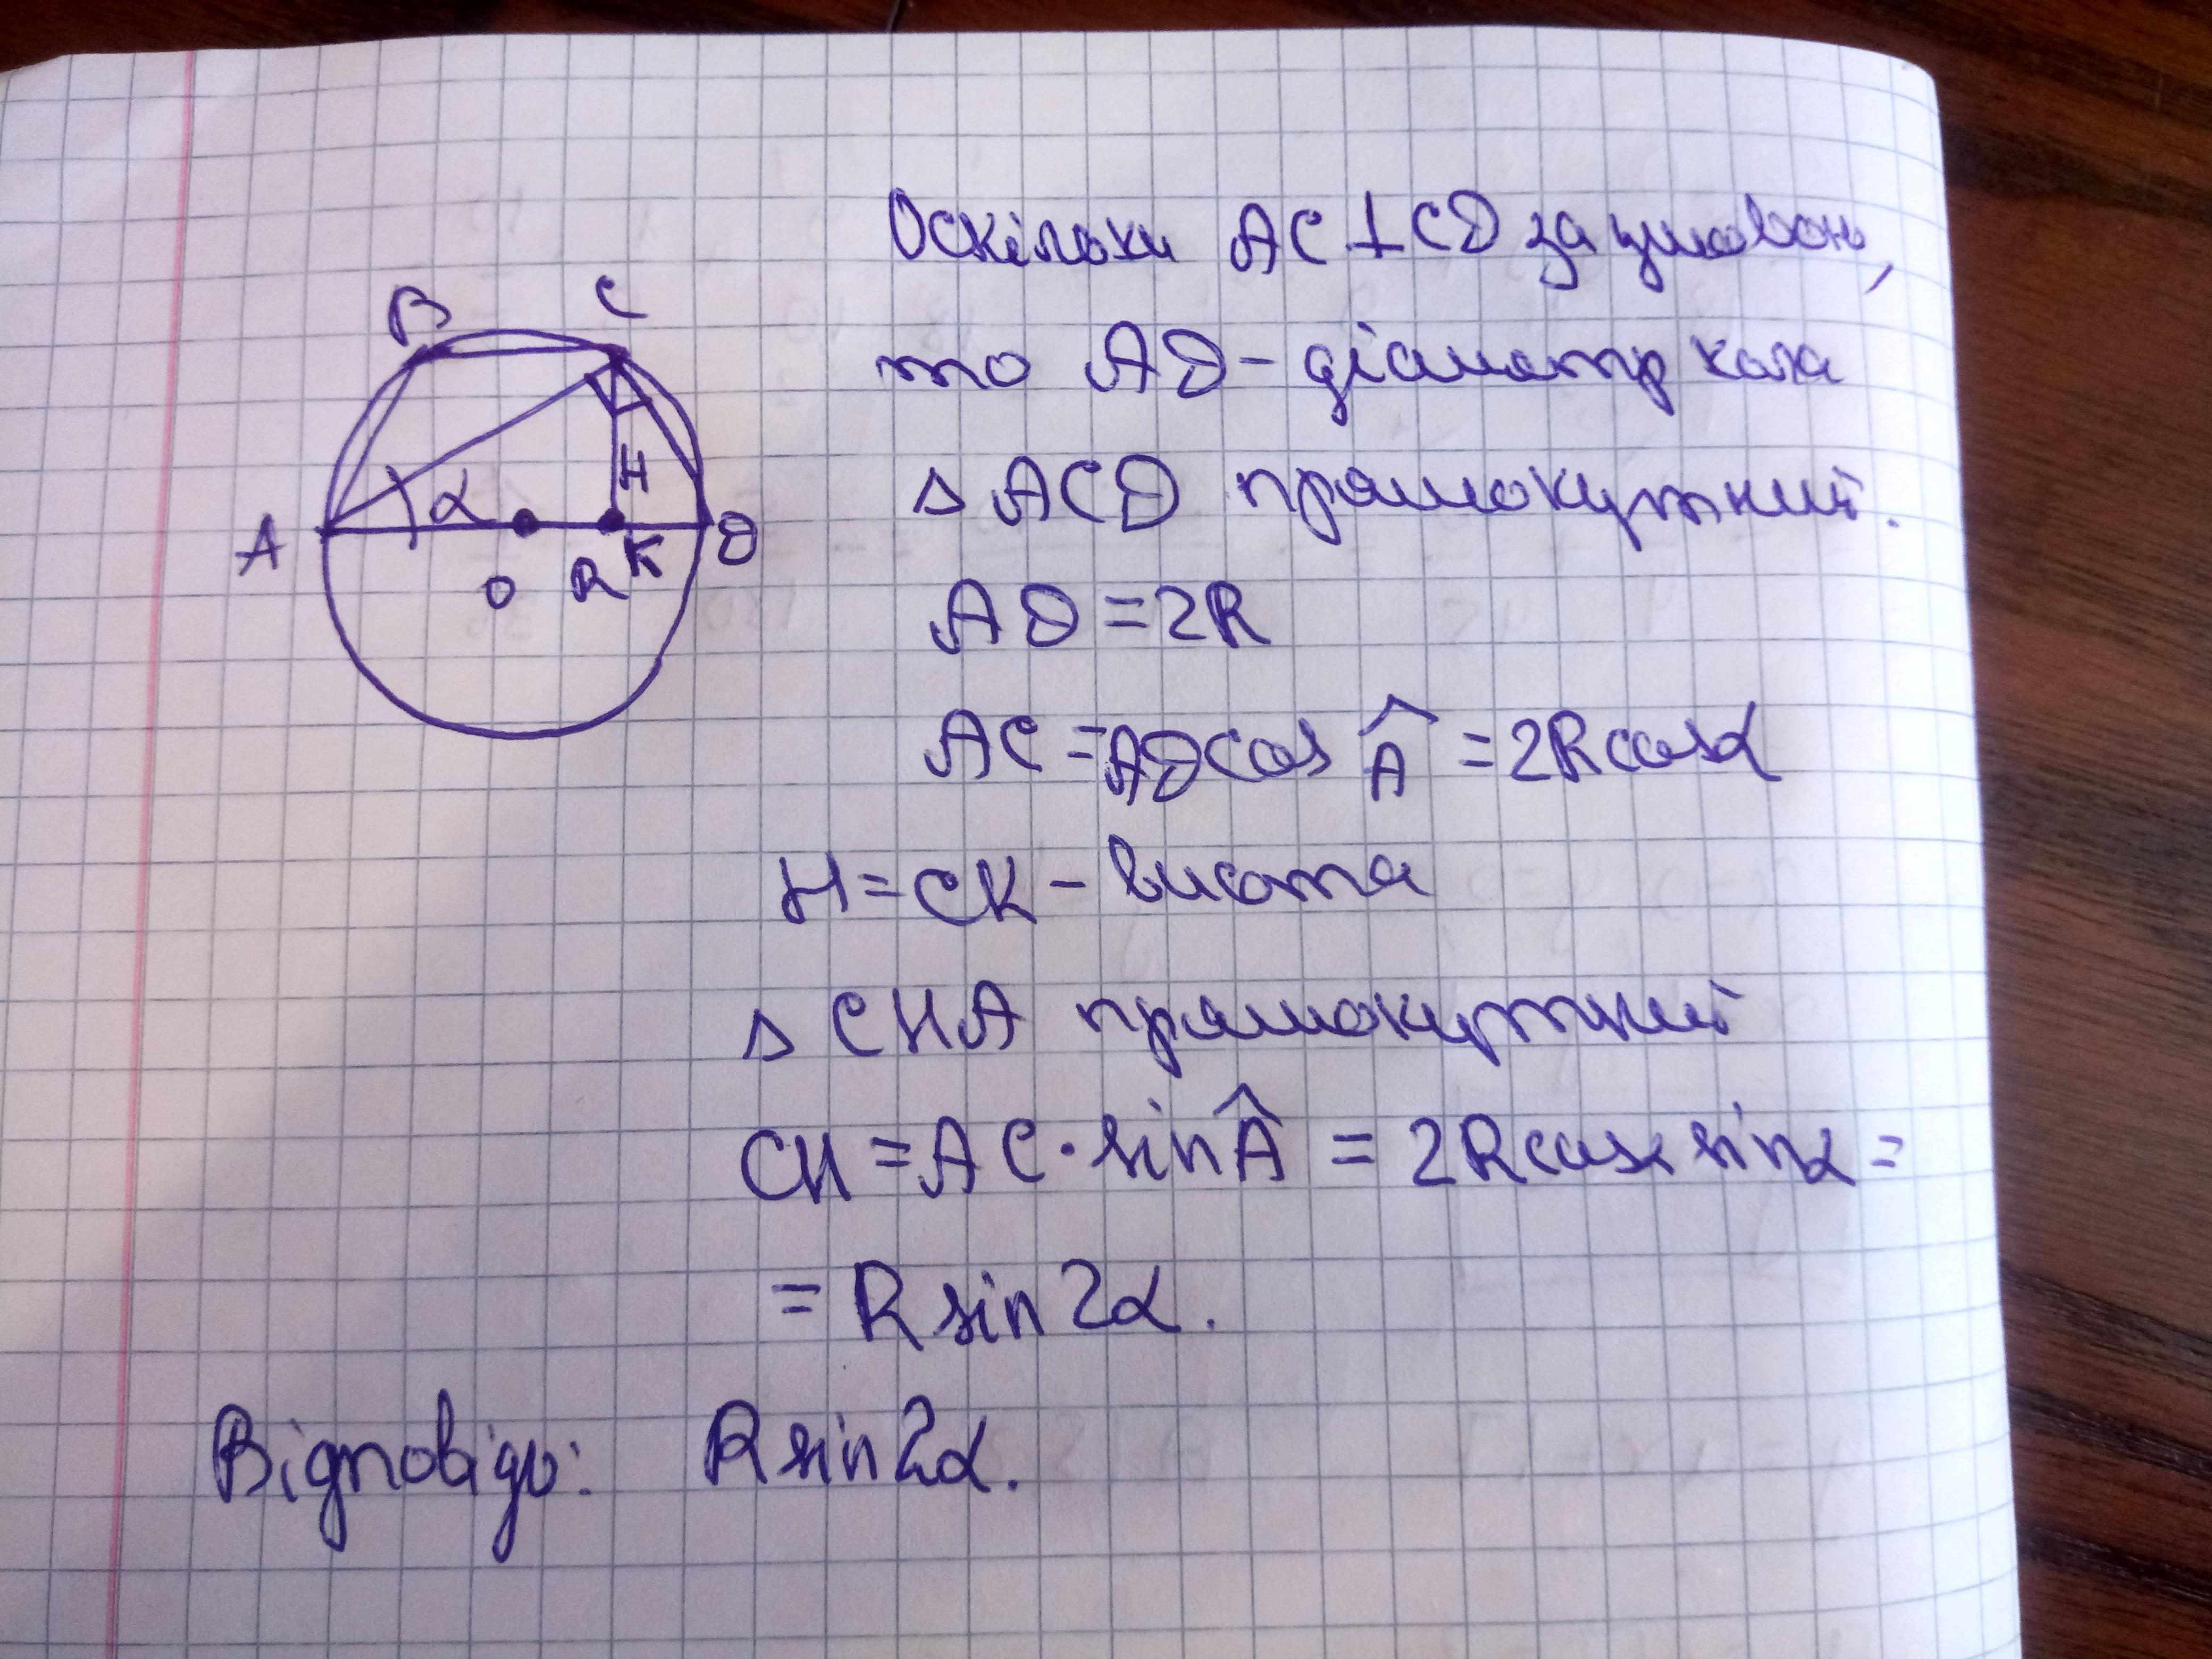 B C
Оскільки AC⊥CD за умовою,
то AD - діаметр кола
H
α
A O R K D
△ ACD прямокутний.
AD = 2R
AC = AD cos Â = 2R cos α
H = CK - висота
△ CKA прямокутний
CK = AC · sin Â = 2R cos α sin α =
= R sin 2α.
Відповідь: R sin 2α.